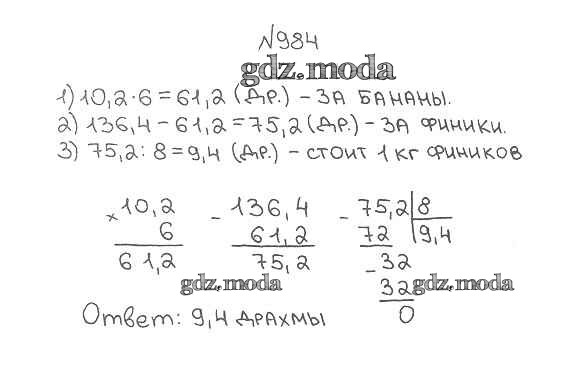 №984
gdz.moda
1) 10,2·6=61,2 (ДР.) – ЗА БАНАНЫ.
2) 136,4–61,2=75,2 (ДР.) – ЗА ФИНИКИ.
3) 75,2:8=9,4 (ДР.) – СТОИТ 1 КГ ФИНИКОВ
× 10,2
6
61,2
– 136,4
61,2
75,2
– 75,2 8
72 9,4
– 32
32
0
gdz.moda gdz.moda
Ответ: 9,4 ДРАХМЫ